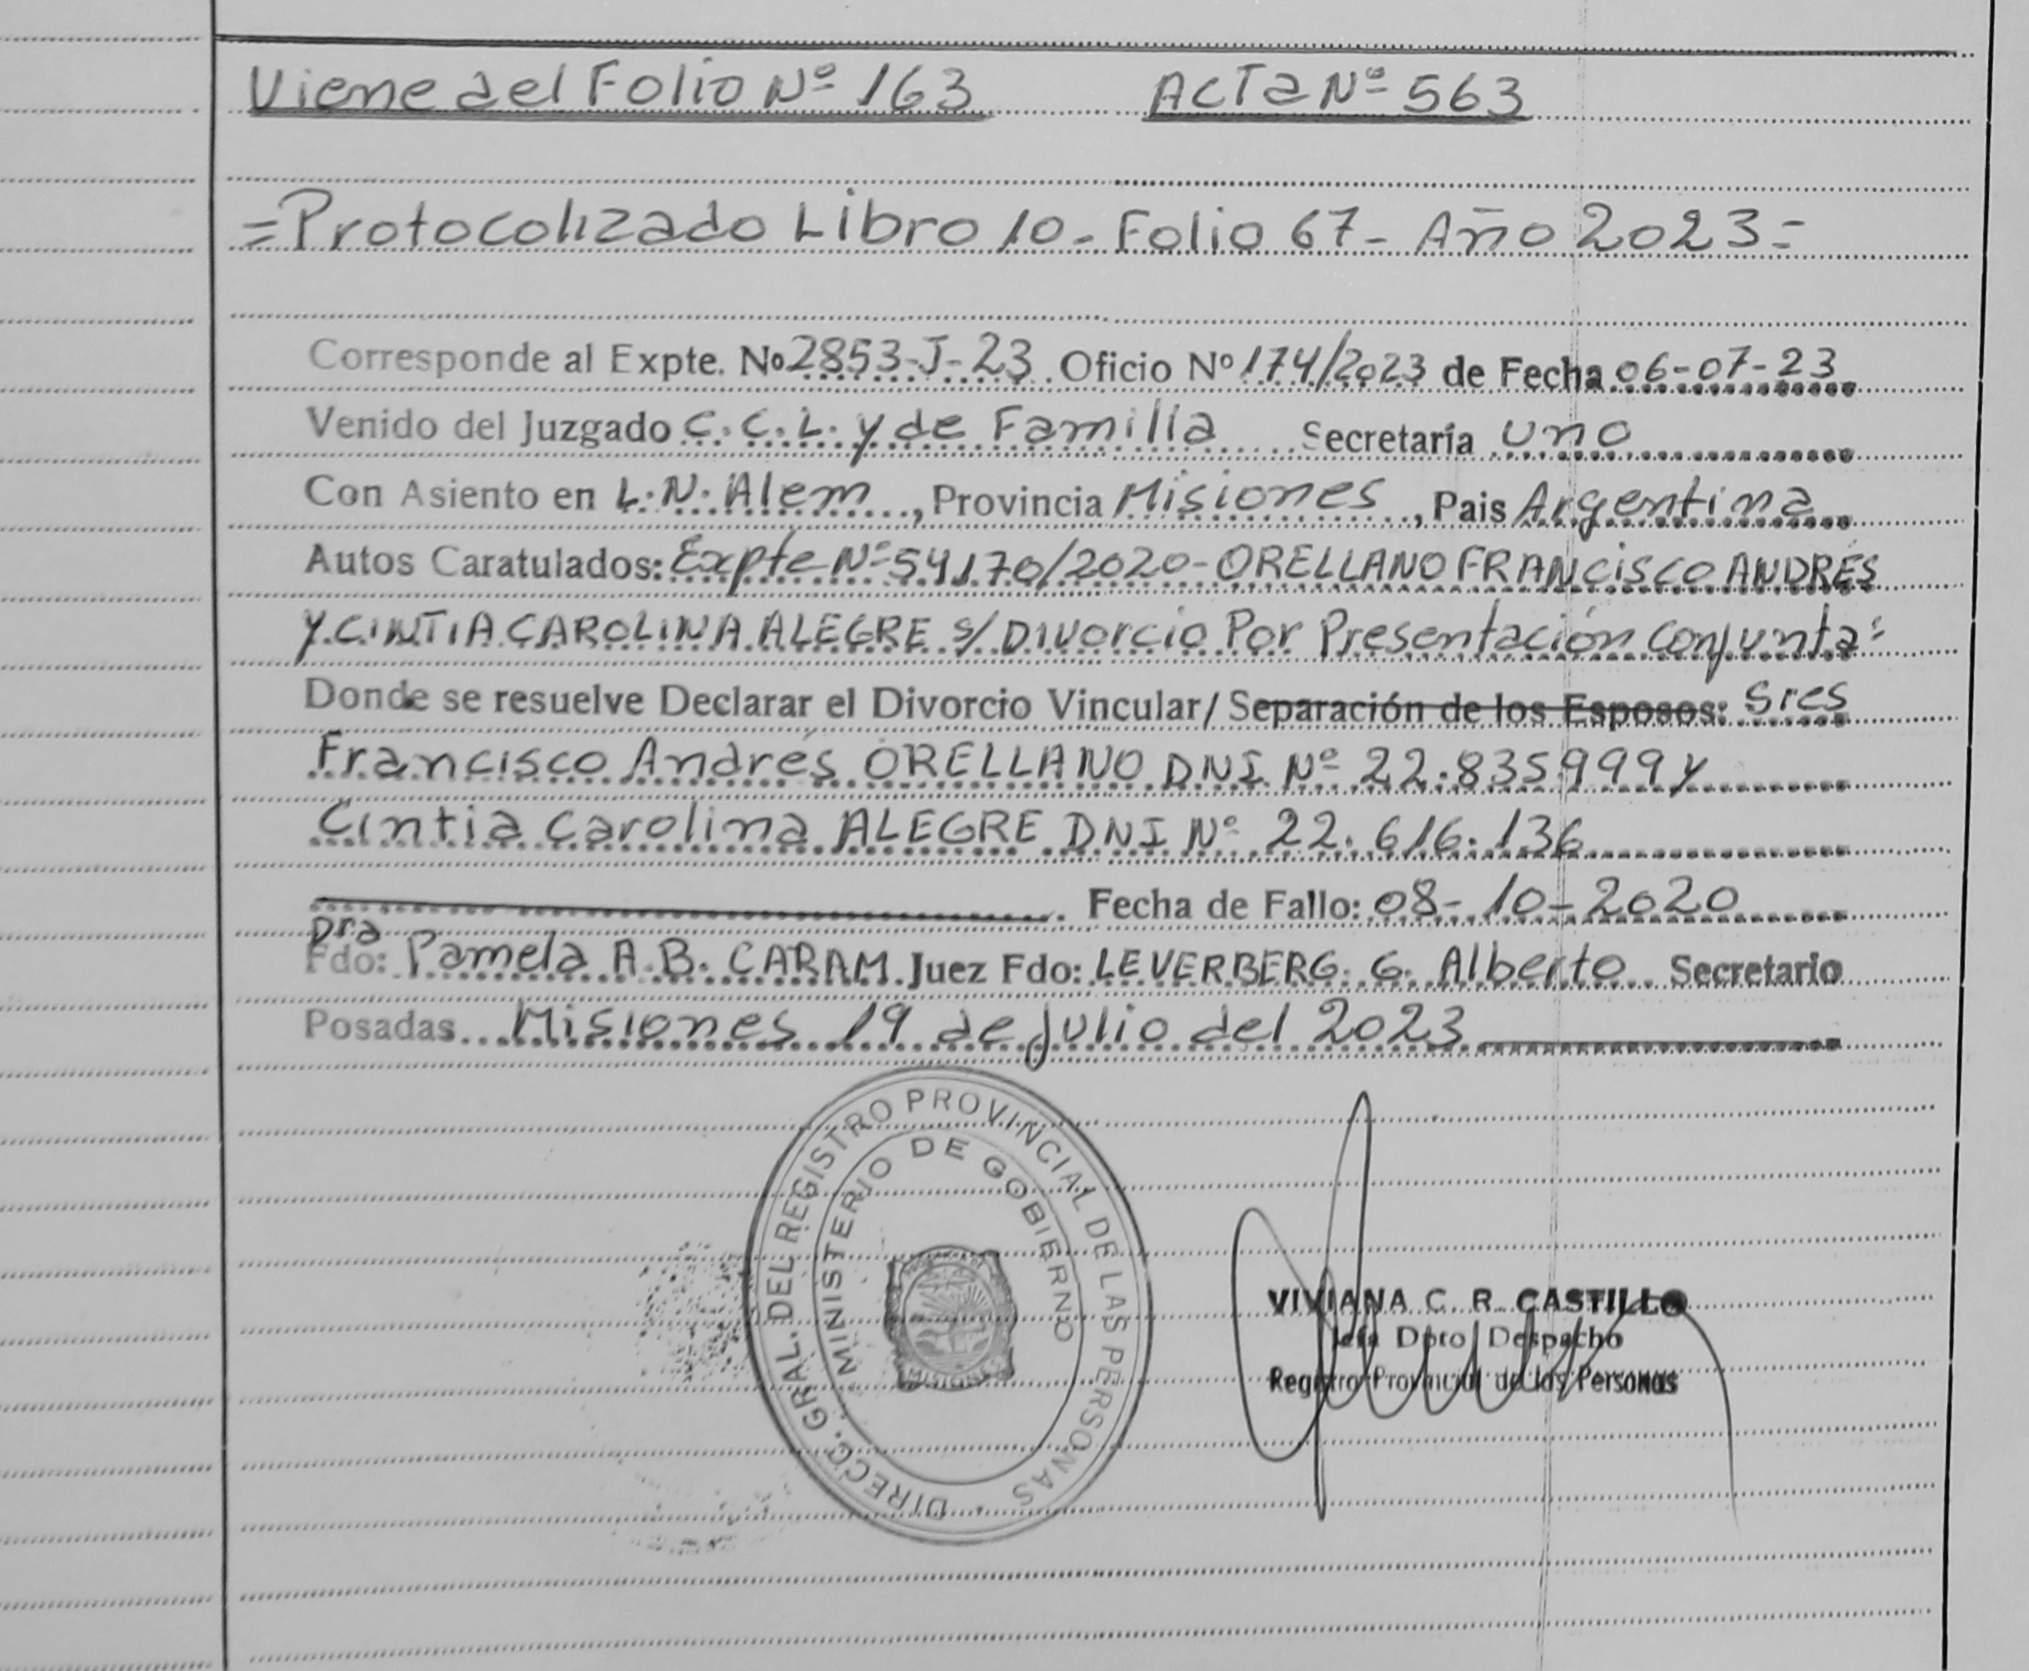 Viene del Folio Nº 163 ACTa Nº 563
=Protocolizado Libro 10 - Folio 67 - Año 2023=
Corresponde al Expte. No 2853-J-23 Oficio Nº 174/2023 de Fecha 06-07-23
Venido del Juzgado C.C.L. y de Familia Secretaría uno
Con Asiento en L.N. Alem, Provincia Misiones, Pais Argentina
Autos Caratulados: Expte Nº 54170/2020- ORELLANO FRANCISCO ANDRÉS
Y CINTIA CAROLINA ALEGRE s/ Divorcio Por Presentación Conjunta=
Donde se resuelve Declarar el Divorcio Vincular/ Separación de los Esposos: Sres
Francisco Andrés ORELLANO DNI Nº 22.835999 y
Cintia Carolina ALEGRE DNI Nº 22.616.136
Fecha de Fallo: 08-10-2020
Dra
Fdo: Pamela A.B. CARAM Juez Fdo: LEVERBERG. G. Alberto Secretario
Posadas Misiones 19 de Julio del 2023
DIRECC. GRAL. DEL REGISTRO PROVINCIAL DE LAS PERSONAS
MINISTERIO DE GOBIERNO
MISIONES
VIVIANA C. R. CASTILLO
Jefa Dpto Despacho
Registro Provincial de las Personas